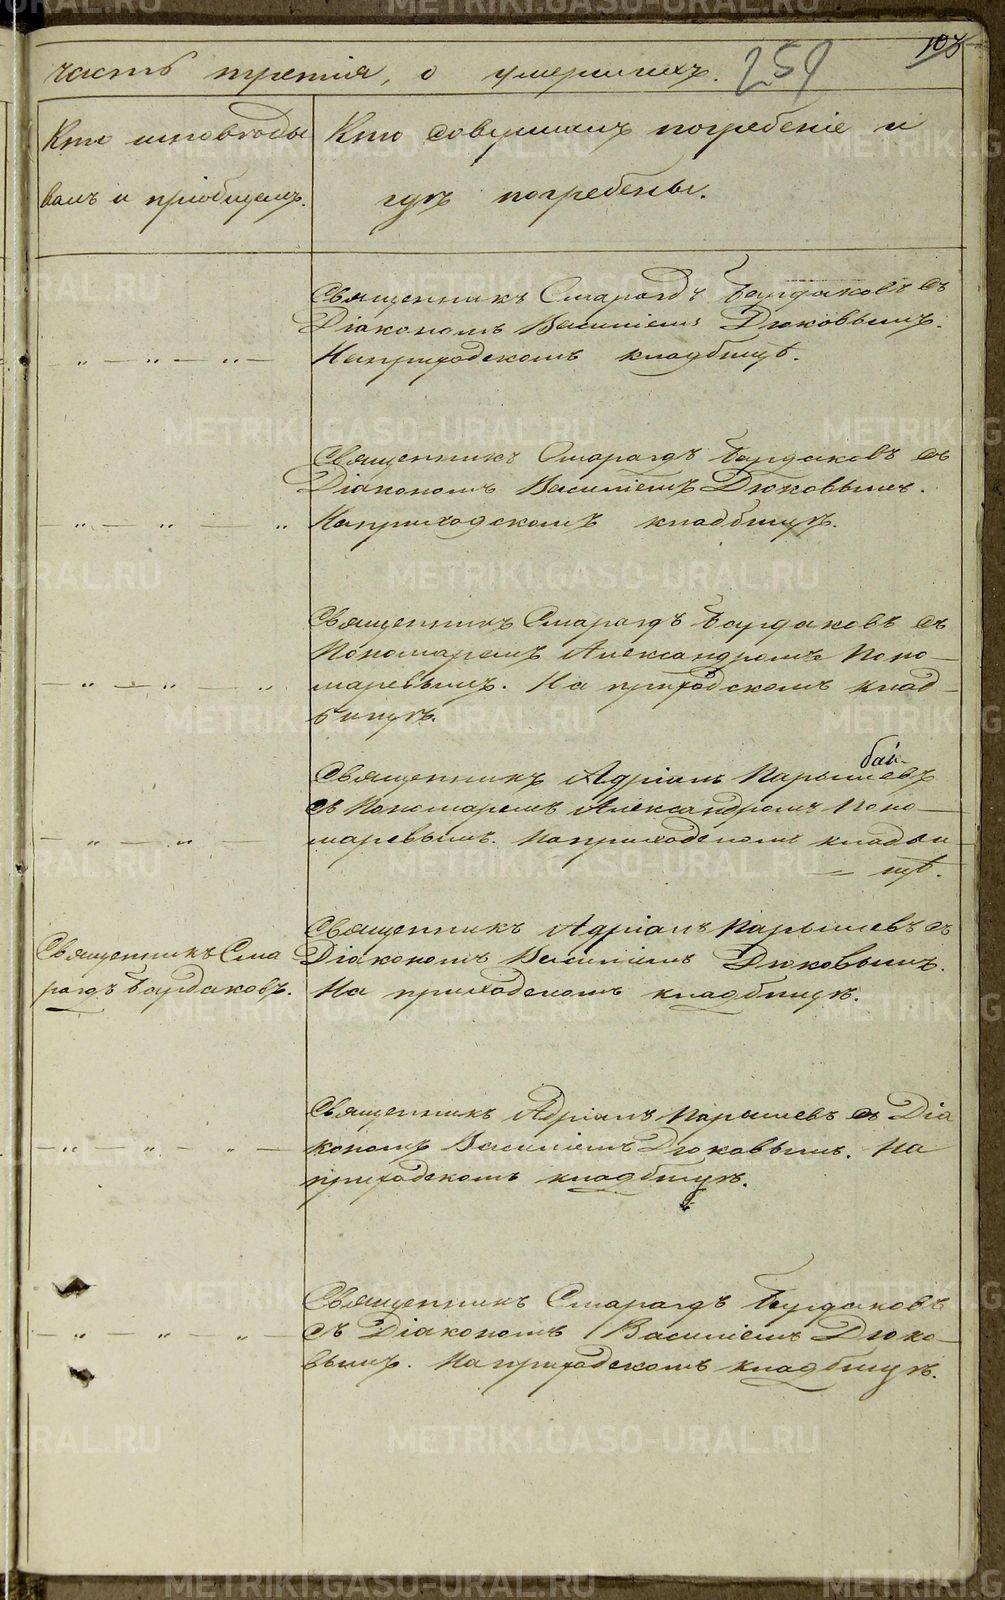 часть третія, о умершихъ. 259
Кто исповѣды
валъ и пріобщалъ.
Кто совершалъ погребеніе и
гдѣ погребены.
Священникъ Смарагдъ Бардаковъ съ
Діакономъ Василіемъ Дюковымъ.
На приходскомъ кладбищѣ.
Священникъ Смарагдъ Бардаковъ съ
Діакономъ Василіемъ Дюковымъ.
На приходскомъ кладбищѣ.
Священникъ Смарагдъ Бардаковъ съ
Пономаремъ Александромъ Поно-
маревымъ. На приходскомъ клад-
бищѣ.
Священникъ Адріанъ Парышевъ
съ Пономаремъ Александромъ Поно-
маревымъ. На приходскомъ кладби-
щѣ.
Священникъ Сма
рагдъ Бардаковъ.
Священникъ Адріанъ Парышевъ съ
Діакономъ Василіемъ Дюковымъ.
На приходскомъ кладбищѣ.
Священникъ Адріанъ Парышевъ съ Діа
кономъ Василіемъ Дюковымъ. На
приходскомъ кладбищѣ.
Священникъ Смарагдъ Бардаковъ
съ Діакономъ Василіемъ Дюко-
вымъ. На приходскомъ кладбищѣ.
METRIKI.GASO-URAL.RU